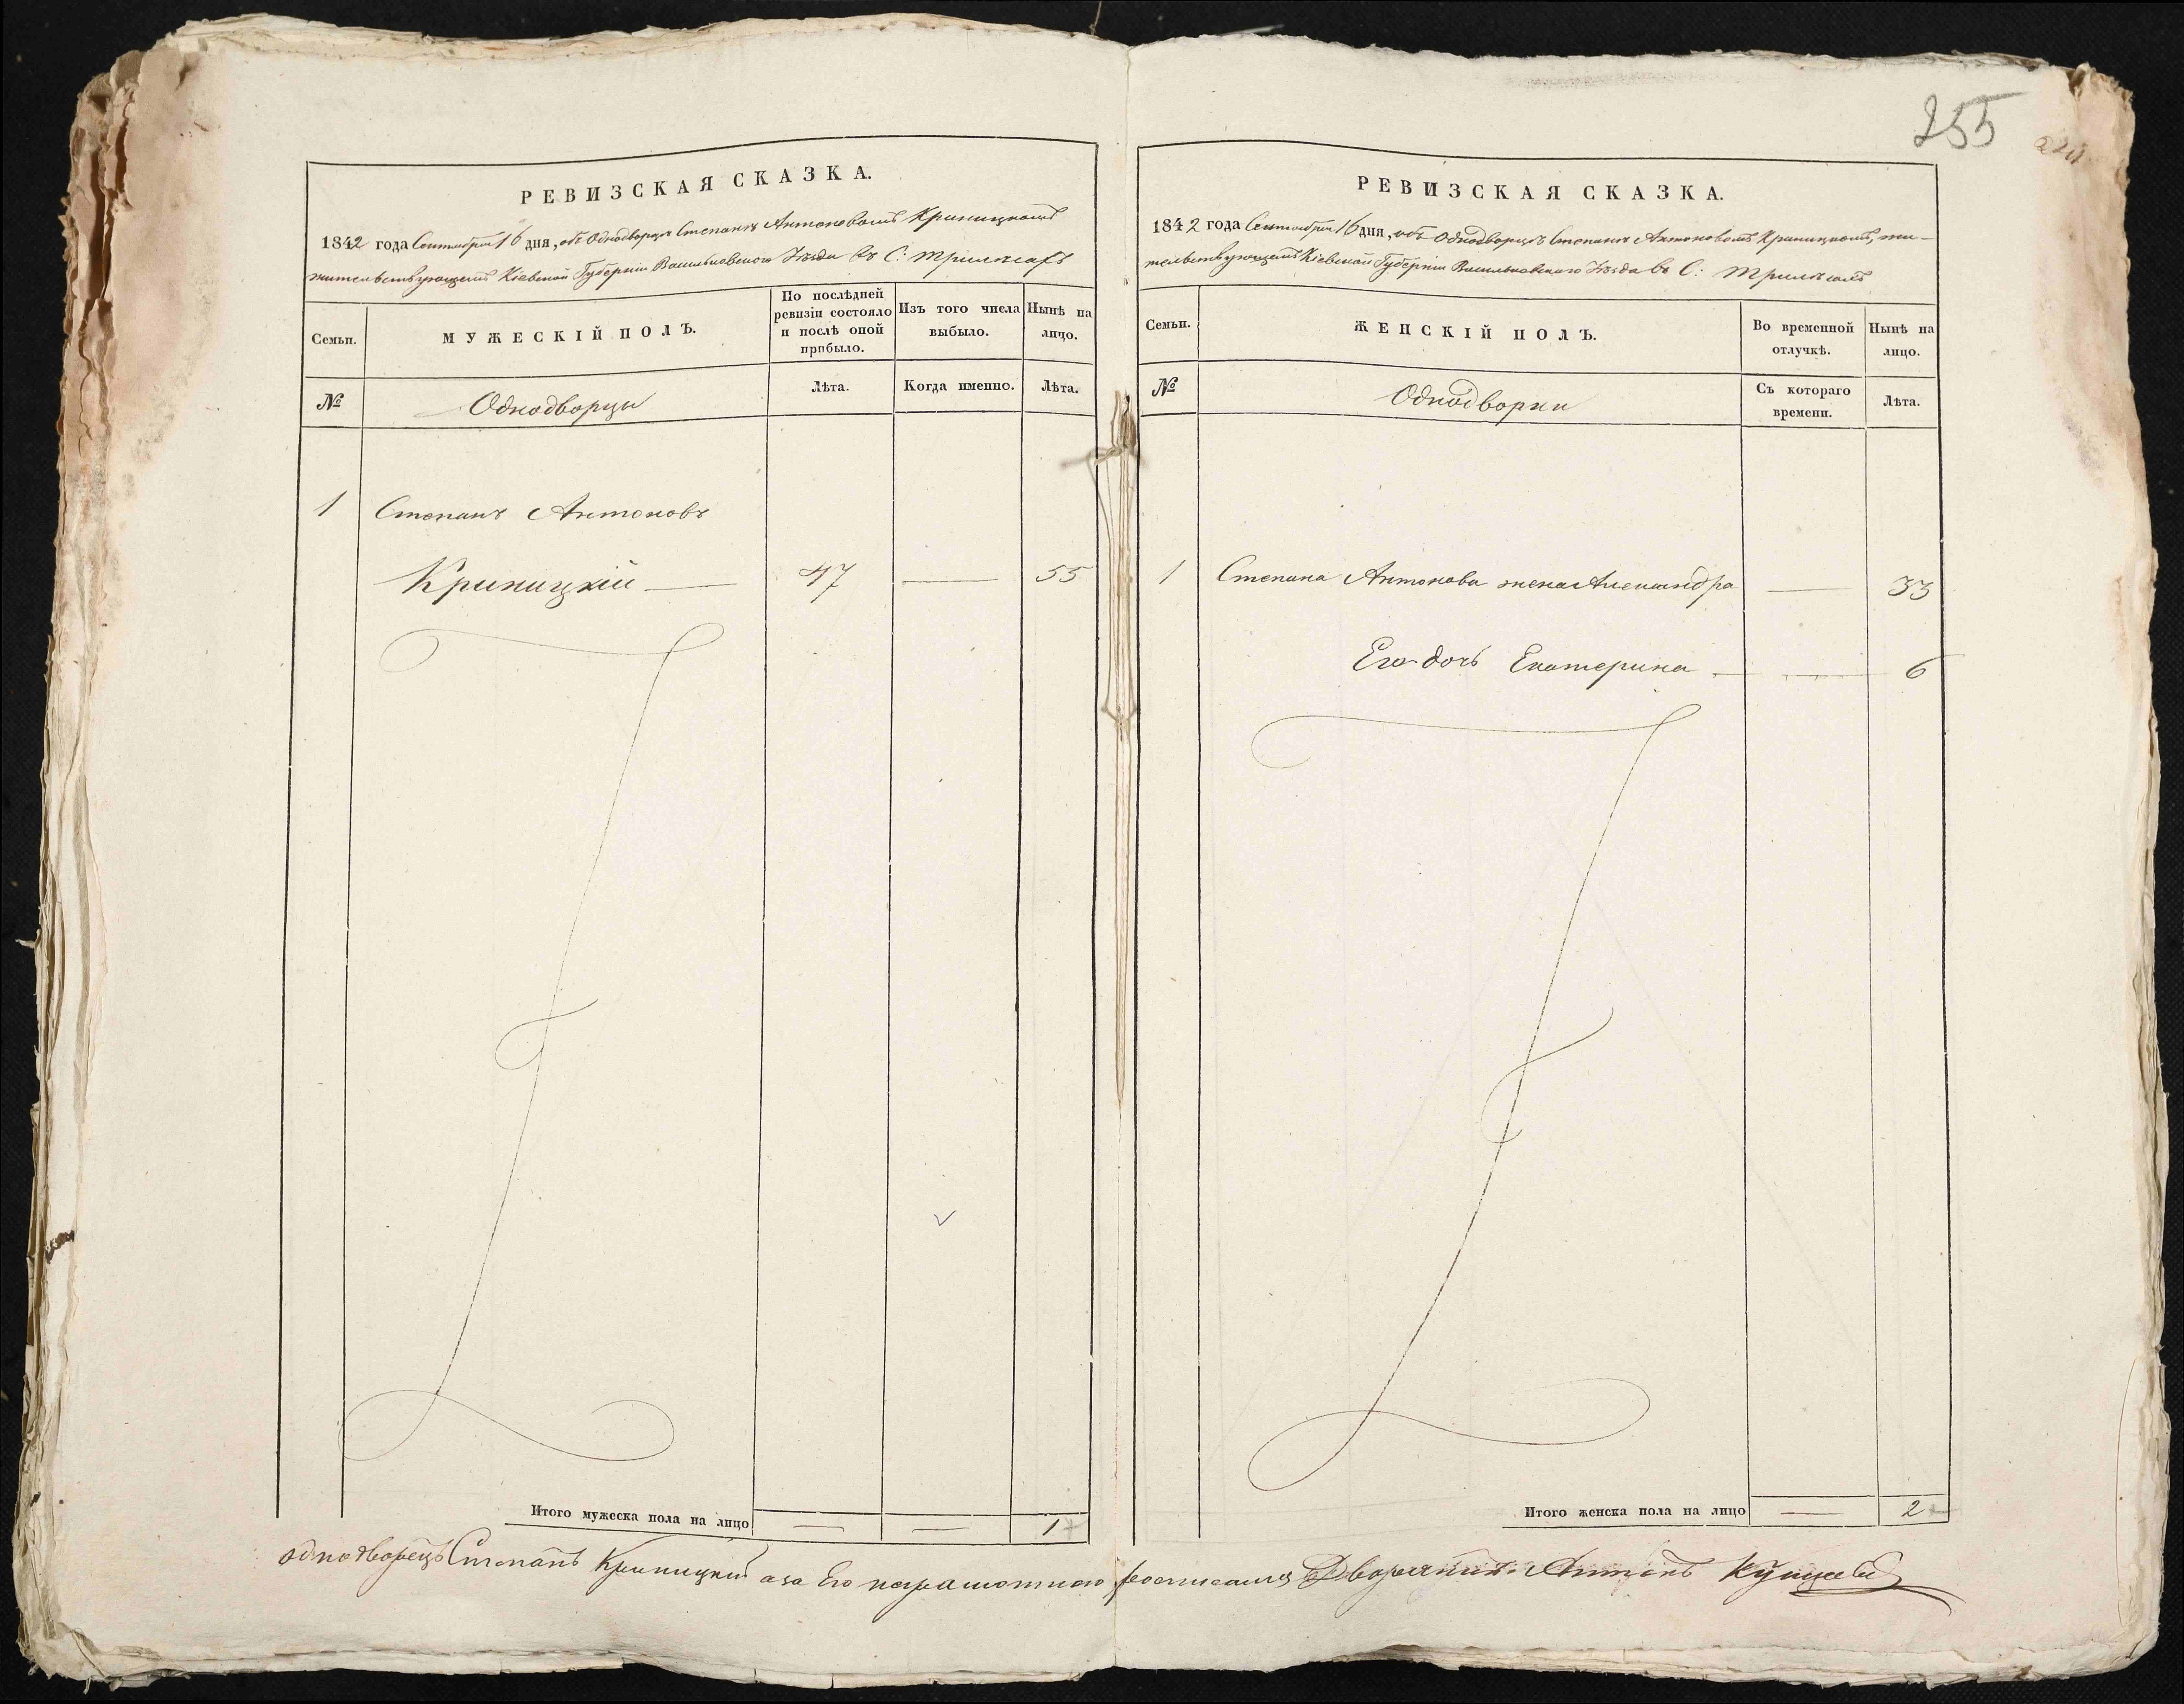 255
РЕВИЗСКАЯ СКАЗКА.
1842 года Сентября 16 дня, объ Однодворцѣ Степанѣ Антоновомъ Криницкомъ
жительствующемъ Кіевской Губерніи Васильковскаго Уѣзда въ С: Трилѣсахъ
Семьи.
МУЖЕСКІЙ ПОЛЪ.
По послѣдней ревизіи состояло и послѣ оной прибыло.
Изъ того числа выбыло.
Нынѣ на лицо.
№
Однодворцы
Лѣта.
Когда именно.
Лѣта.
1 Степанъ Антоновъ
Криницкій — 47 — 55
Итого мужеска пола на лицо — — 1
РЕВИЗСКАЯ СКАЗКА.
1842 года Сентября 16 дня, объ Однодворцѣ Степанѣ Антоновомъ Криницкомъ, жи-
тельствующемъ Кіевской Губерніи Васильковскаго Уѣзда въ С: Трилѣсахъ
Семьи.
ЖЕНСКІЙ ПОЛЪ.
Во временной отлучкѣ.
Нынѣ на лицо.
№
Однодворки
Съ котораго времени.
Лѣта.
1 Степана Антонова жена Александра — 33
Его дочь Екатерина — — 6
Итого женска пола на лицо — 2
однодворецъ Степанъ Криницкій а за Его неграмотного росписался Дворянинъ Антонъ